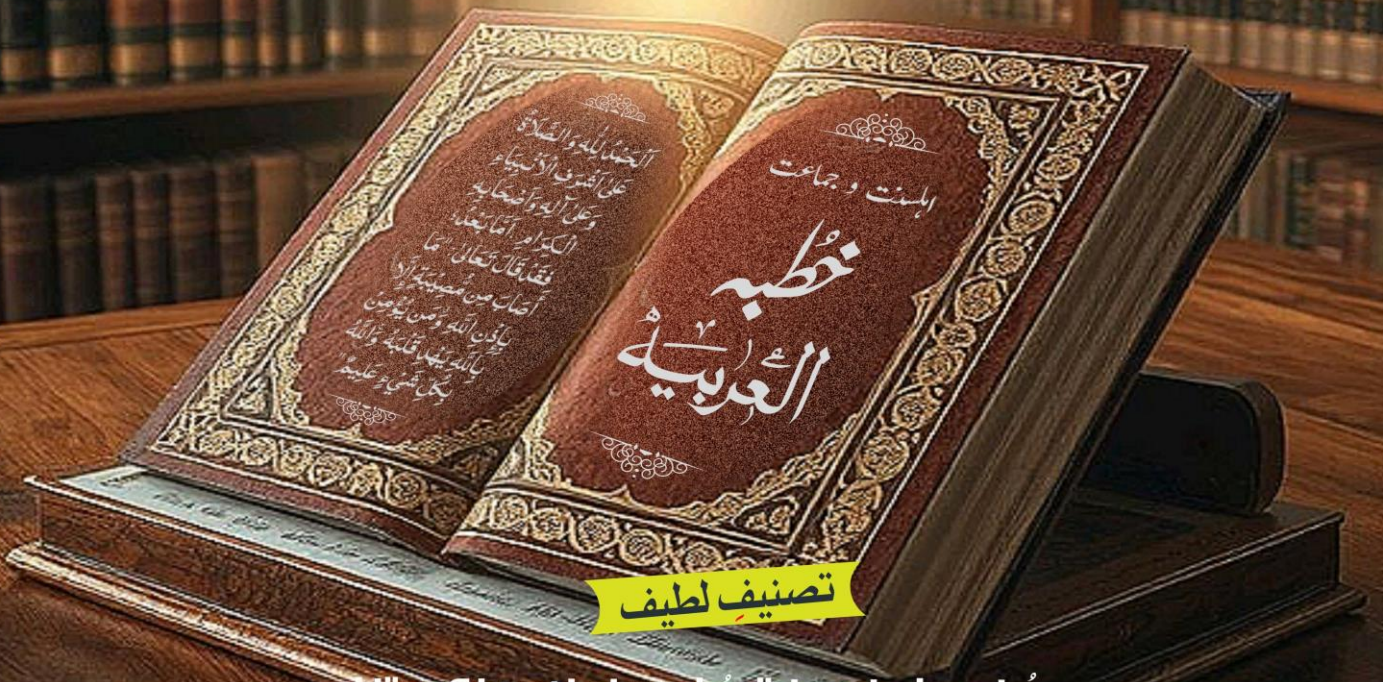 اہلسنت و جماعت
خُطبہ
العربیہ
اَلْحَمْدُ لِلّٰهِ وَالصَّلَاةُ
عَلٰى اَشْرَفِ الْاَنْبِيَاءِ
وَعَلٰى آلِهٖ وَاَصْحَابِهٖ
الْكِرَامِ اَمَّا بَعْدُ:
فَقَدْ قَالَ تَعَالٰى: "مَا
اَصَابَ مِنْ مُّصِيْبَةٍ اِلَّا
بِاِذْنِ اللّٰهِ وَمَنْ يُّؤْمِنْ
بِاللّٰهِ يَهْدِ قَلْبَهٗ وَاللّٰهُ
بِكُلِّ شَيْءٍ عَلِيْمٌ
تصنیفِ لطیف